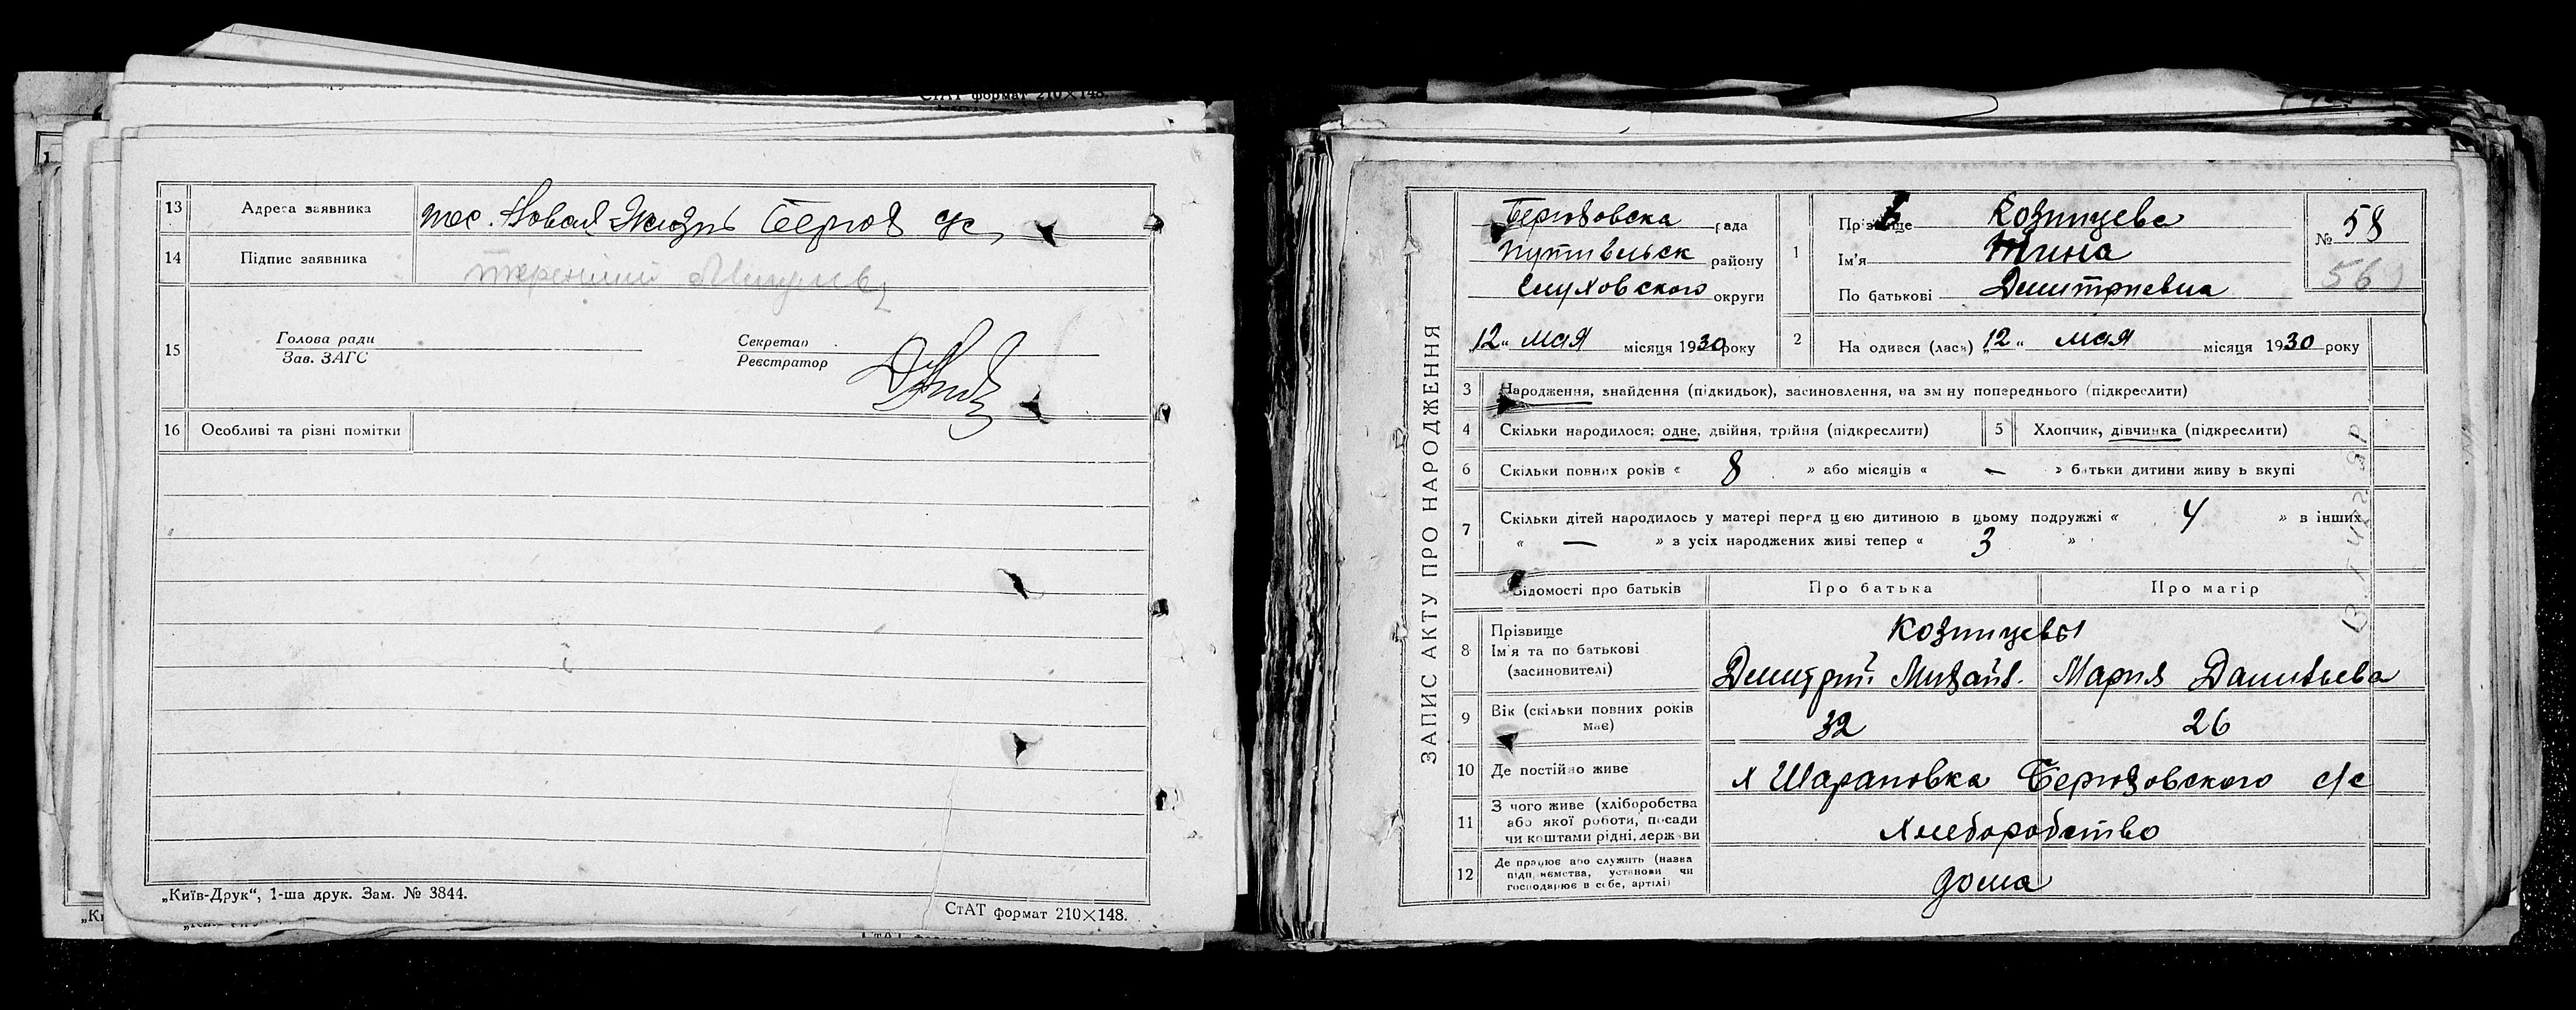 СтАТ формат 210×148.
13 Адреса заявника пос. Новая Жизнь Берюз с/с,
14 Підпис заявника
15 Голова ради
Зав. ЗАГС
Секретар
Реєстратор
16 Особливі та різні помітки
„Київ-Друк“, 1-ша друк. Зам. № 3844.
СтАТ формат 210×148.
ЗАПИС АКТУ ПРО НАРОДЖЕННЯ
Берюзовска рада
Путивльск району
Глуховского округи
„12„ мая місяця 1930 року
1 Прізвище Козпицева
Ім'я Нина
По батькові Дмитриевна
№ 58
560
2 На одився (лась) „12„ мая місяця 1930 року
3 Народження, знайдення (підкидьок), засиновлення, на зм ну попереднього (підкреслити)
4 Скільки народилося: одне, двійня, трійня (підкреслити)
5 Хлопчик, дівчинка (підкреслити)
6 Скільки повних років « 8 » або місяців « — » батьки дитини живу ь вкупі
7 Скільки дітей народилось у матері перед цією дитиною в цьому подружжі « 4 » в інших
« — » з усіх народжених живі тепер « 3 »
Відомості про батьків Про батька Про матір
8 Прізвище
Ім'я та по батькові
(засиновителі)
Козпицевы
Дмитрий Михайл. Мария Данильева
9 Вік (скільки повних років
має)
32 26
10 Де постійно живе х Шараповка Берюзовского с/с
11 З чого живе (хліборобства
або якої роботи, посади
чи коштами рідні, держави
Хлеборобство
12 Де працює або служить (назва
підприємства, установи чи
господарює в себе, артілі)
дома